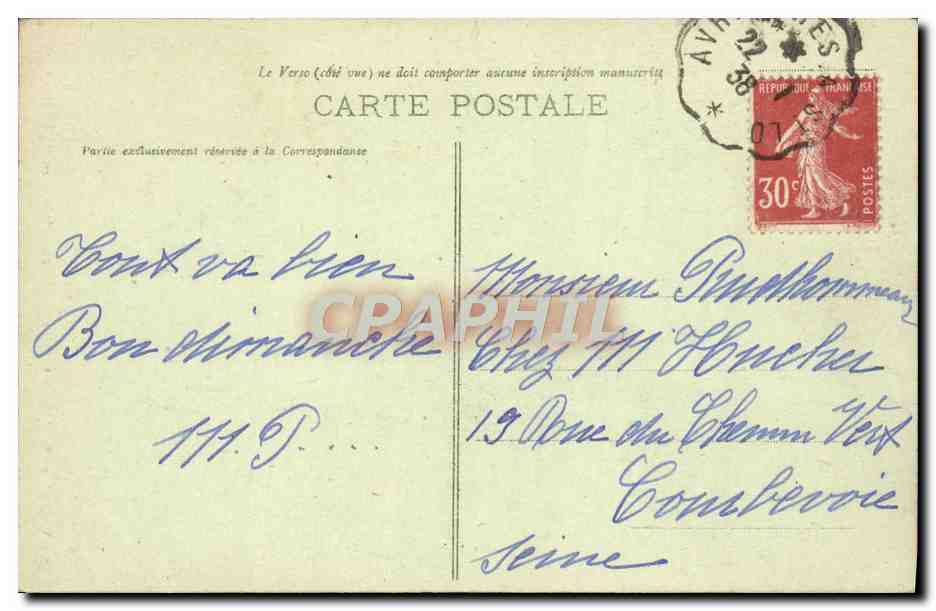 Le Verso (côté vue) ne doit comporter aucune inscription manuscrite
CARTE POSTALE
Partie exclusivement réservée à la Correspondance
22
38
LO
RÉPUBLIQUE FRANÇAISE
30c
POSTES
Tout va bien
Bon dimanche
M. P. ...
CPAPHIL
Monsieur Prudhommeaux
Chez M Hucher
19 Rue du Chemin Vert
Combevoie
Seine